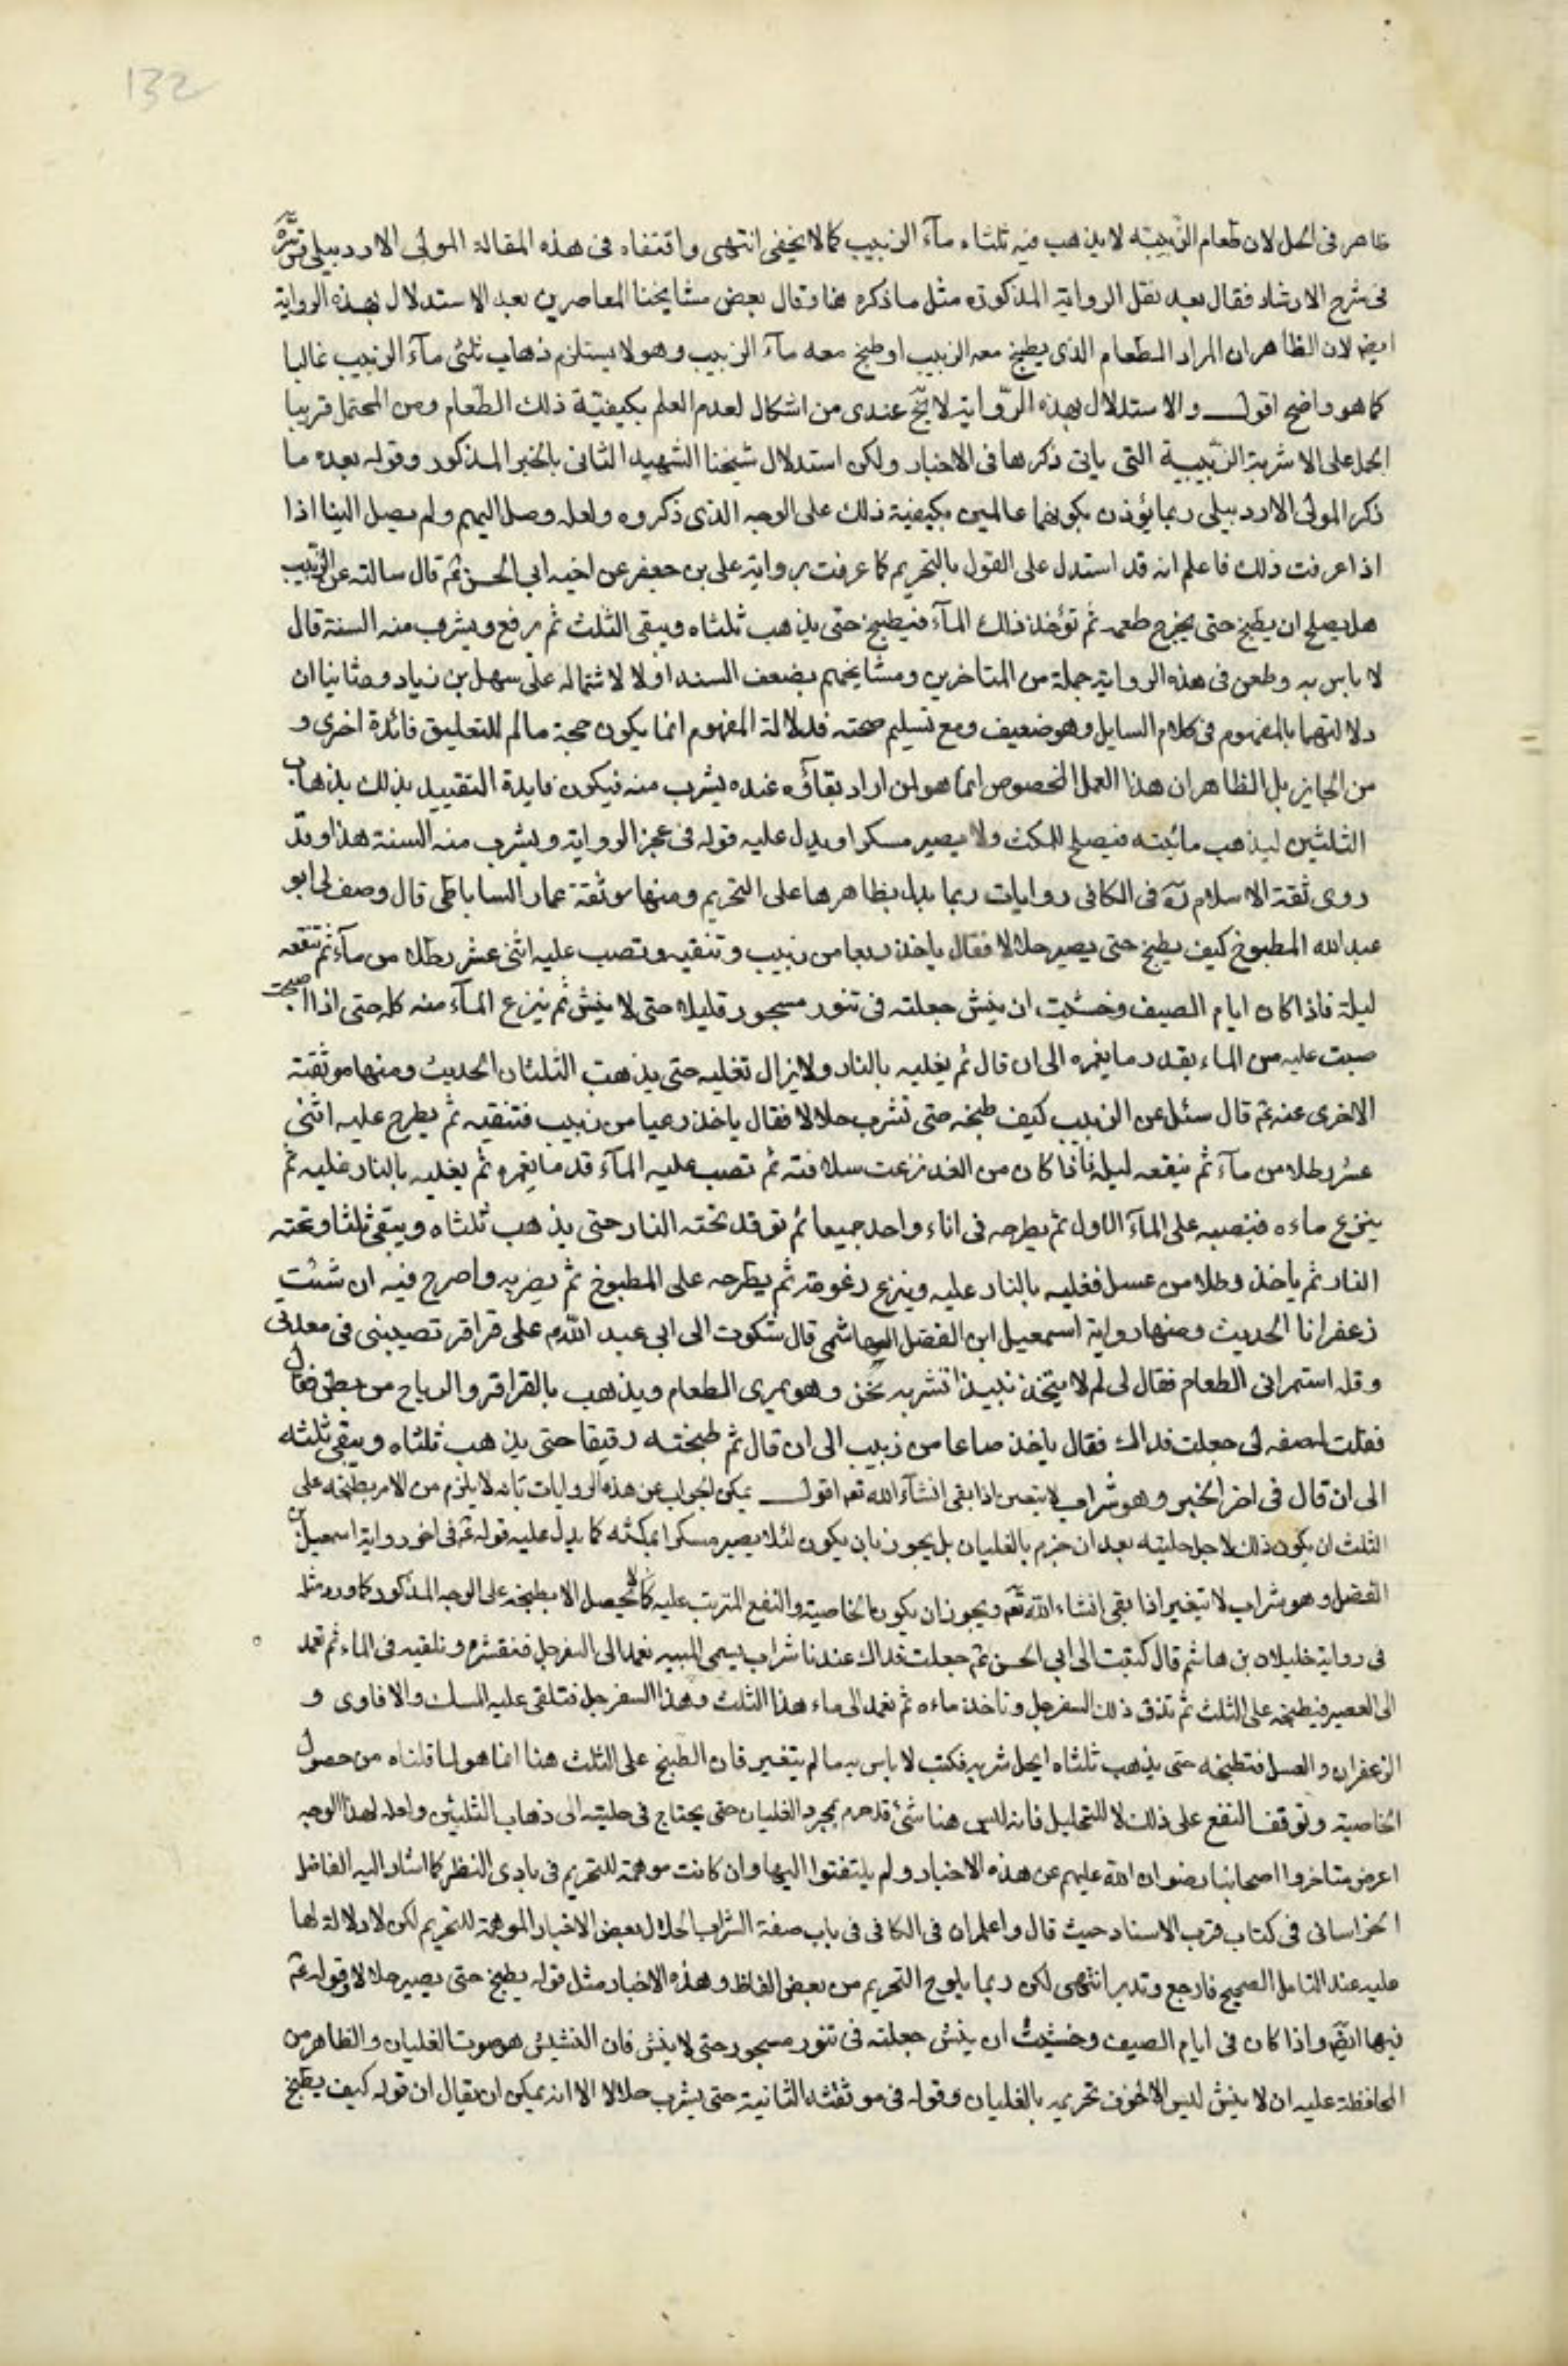 132
ظاهر فى الحل لان طعام الزبيبه لا يذهب فيه ثلثاء مآء الزبيب كما لا يخفى انتهى واقتفاه فى هذه المقالة المولى الاردبيلى قدس سره
فى شرح الارشاد فقال بعد نقل الرواية المذكورة مثل ما ذكره هنا وقال بعض مشايخنا المعاصرين بعد الاستدلال بهذه الرواية
ايضا لان الظاهر ان المراد الطعام الذى يطبخ معه الزبيب او طبخ معه مآء الزبيب وهو لا يستلزم ذهاب ثلثى مآء الزبيب غالبا
كما هو واضح اقول والاستدلال بهذه الرّواية لا يخ عندى من اشكال لعدم العلم بكيفيّة ذلك الطّعام ومن المحتمل قريبا
الحمل على الاشربة الزّبيبية التى ياتى ذكرها فى الاخبار ولكن استدلال شيخنا الشهيد الثانى بالخبر المذكور وقوله بعده ما
ذكر المولى الاردبيلى ربما يؤذن بكونهما عالمين بكيفية ذلك على الوجه الذى ذكروه ولعله وصل اليهم ولم يصل الينا اذا
اذا عرفت ذلك فاعلم انه قد استدل على القول بالتحريم كما عرفت برواية على بن جعفر عن اخيه ابى الحسن ع قال سالته عن الزبيب
هل يصلح ان يطبخ حتى يخرج طعمه ثم تؤخذ ذاك المآء فيطبخ حتى يذهب ثلثاه ويبقى الثلث ثم يرفع ويشرب منه السنة قال
لا باس به وطعن فى هذه الرواية جملة من المتاخرين ومشايخهم بضعف السند اولا لاشتماله على سهل بن زياد وثانيا ان
دلالتهما بالمفهوم فى كلام السايل وهو ضعيف ومع تسليم صحته فدلالة المفهوم انما يكون حجة ما لم للتعليق فائدة اخرى و
من الجايز بل الظاهر ان هذا العمل المخصوص انما هو لمن اراد بقاؤه عنده يشرب منه فيكون فايدة التقييد بذلك بذهاب
الثلثين ليذهب مائيته فيصلح للمكث ولا يصير مسكرا ويدل عليه قوله فى عجز الرواية ويشرب منه السنة هذا وقد
روى ثقة الاسلام ره فى الكافى روايات ربما يدل بظاهرها على التحريم ومنها موثقة عمار الساباطى قال وصف لى ابو
عبد الله المطبوخ كيف يطبخ حتى يصير حلالا فقال ياخذ ربعا من زبيب وتنقيه وتصب عليه اثنى عشر رطلا من مآء ثم تنقعه
ليلة فاذا كان ايام الصيف وخشيت ان ينش جعلته فى تنور مسجور قليلا حتى لا ينش ثم ينزع المآء منه كله حتى اذا اصبحت
صببت عليه من الماء بقدر ما يغمره الى ان قال ثم يغليه بالنار ولا يزال تغليه حتى يذهب الثلثان الحديث ومنها موثقته
الاخرى عنه ع قال سئل عن الزبيب كيف طبخه حتى تشرب حلالا فقال ياخذ ربعا من زبيب فتنقيه ثم يطرح عليه اثنى
عشر رطلا من مآء ثم ينقعه ليلة فاذا كان من الغد نزعت سلافته ثم تصب عليه المآء قدر ما يغمره ثم يغليه بالنار غليه ثم
ينزع ماءه فتصبه على المآء الاول ثم يطرحه فى اناء واحد جميعا ثم توقد تحته النار حتى يذهب ثلثاه ويبقى ثلثا وتحته
النار ثم ياخذ رطلا من عسل فغليه بالنار عليه وينزع رغوته ثم يطرحه على المطبوخ ثم يضربه واصرح فيه ان شئت
زعفرانا الحديث ومنها رواية اسمعيل ابن الفضل الهاشمى قال شكوت الى ابى عبد الله م على قراقر تصيبنى فى معدتى
وقله استمرانى الطعام فقال لى لم لا يتخذ نبيذا نشربه نحن وهو يمرى الطعام ويذهب بالقراقر والرياح من بطنى فقال
فقلت لصفه لى جعلت فداك فقال ياخذ صاعا من زبيب الى ان قال ثم طبخته رقيقا حتى يذهب ثلثاه ويبقى ثلثه
الى ان قال فى اخر الخبر وهو شراب لا يتغير اذا بقى انشآء الله تعه اقول يمكن الجواب عن هذه الروايات بانه لا يلزم من الامر بطبخه على
الثلث ان يكون ذلك لاجل حليته بعد ان حرم بالغليان بل يجوز بان يكون لئلا يصير مسكرا بمكثه كما يدل عليه قوله ع فى اخر رواية اسمعيل بن
الفضل وهو شراب لا يتغير اذا بقى انشاء الله تع ويجوز ان يكون الخاصية والنفع المترتب عليه لا يحصل الا بطبخه على الوجه المذكور كما ورد مثله
فى رواية خليلان بن هاشم قال كتبت الى ابى الحسن ع جعلت فداك عندنا شراب يسمى الميبه نعمد الى السفرجل فنقشره ونلقيه فى الماء ثم نعمد
الى العصير فيطبخه على الثلث ثم تذق ذلك السفرجل وناخذ ماءه ثم نعمد الى ماء هذا الثلث وهذا السفرجل فتلقى عليه المسك والافاوى و
الزعفران والعسل فتطبخه حتى يذهب ثلثاه ايحل شربه فكتب لا باس به ما لم يتغير فان الطبخ على الثلث هنا انما هو لما قلناه من حصول
الخاصية وتوقف النفع على ذلك لا للتحليل فانه ليس هنا شئ قد حرم بمجرد الغليان حتى يحتاج فى حليته الى ذهاب الثلثين ولعله لهذا الوجه
اعرض متاخروا اصحابنا رضوان الله عليهم عن هذه الاخبار ولم يلتفتوا اليها وان كانت موهمة للتحريم فى بادى النظر كما اشار اليه الفاضل
الخراسانى فى كتاب قرب الاسناد حيث قال واعلم ان فى الكافى فى باب صفة الشراب الحلال بعض الاخبار الموهمة للتحريم لكن لا دلالة لها
عليه عند التامل الصحيح فارجع وتدبر انتهى لكن ربما يلوح التحريم من بعض الفاظ وهذه الاخبار مثل قوله يطبخ حتى يصير حلالا وقوله ع
فيها ايضا واذا كان فى ايام الصيف وخشيت ان ينش جعلته فى تنور مسجور حتى لا ينش فان النشيش هو صوت الغليان والظاهر من
المحافظة عليه ان لا ينش ليس الا لخوف تحريمه بالغليان وقوله فى موثقته الثانية حتى يشرب حلالا الا انه يمكن ان يقال ان قوله كيف يطبخ